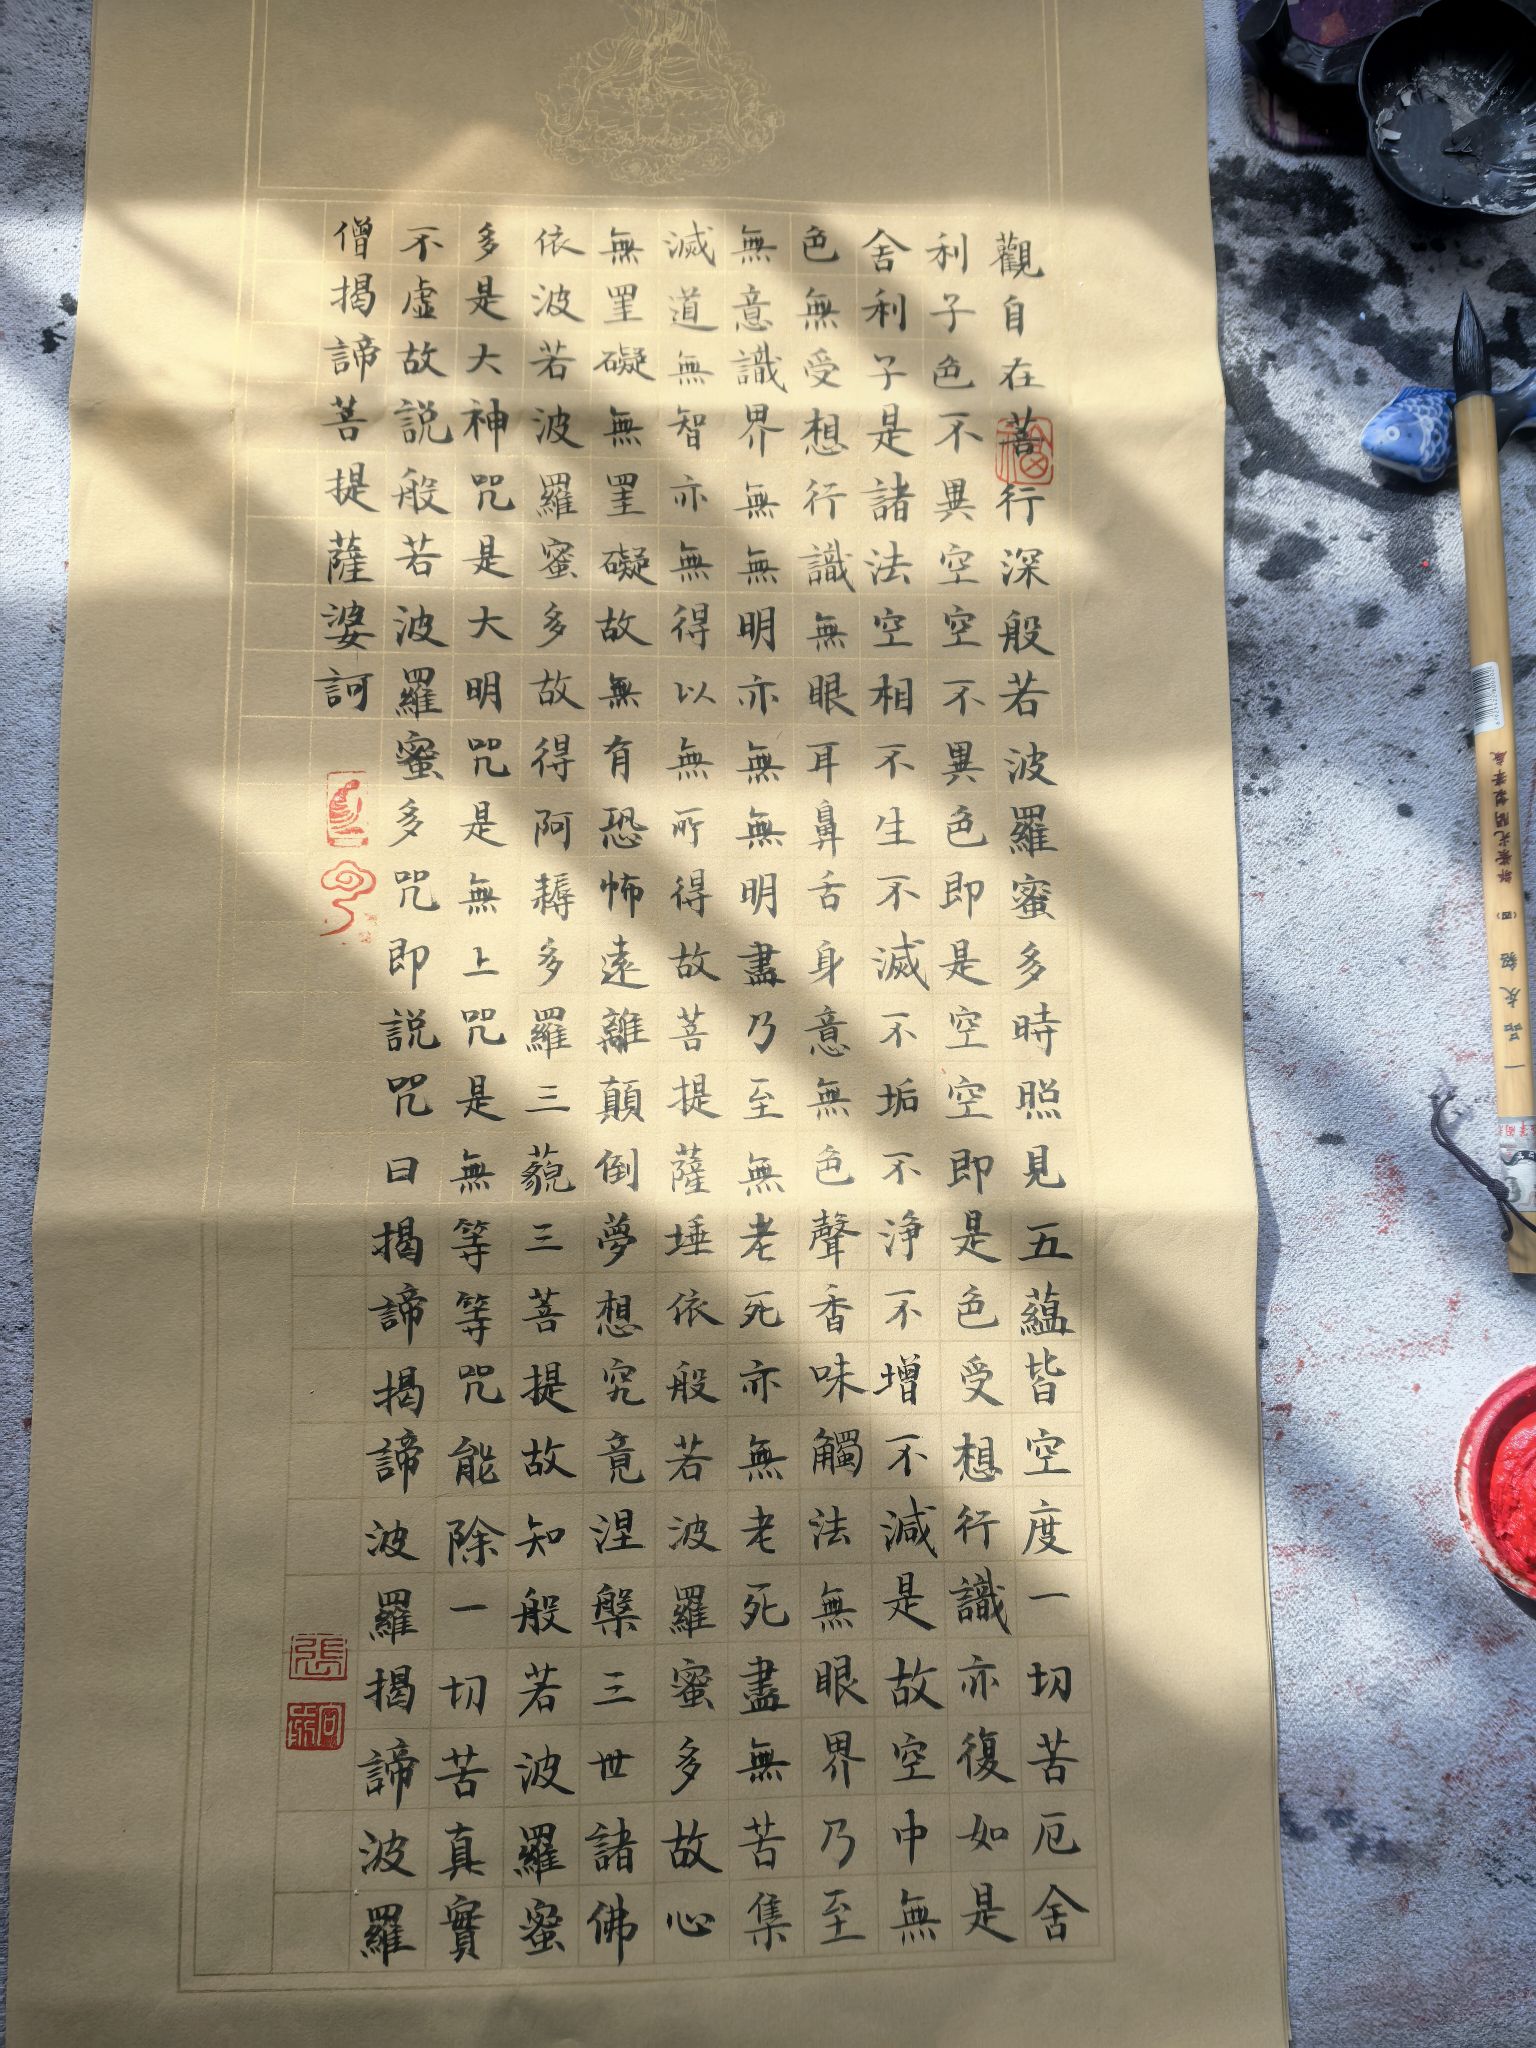 觀自在菩行深般若波羅蜜多時照見五蘊皆空度一切苦厄舍
利子色不異空空不異色即是空空即是色受想行識亦復如是
舍利子是諸法空相不生不滅不垢不浄不增不減是故空中無
色無受想行識無眼耳鼻舌身意無色聲香味觸法無眼界乃至
無意識界無無明亦無無明盡乃至無老死亦無老死盡無苦集
滅道無智亦無得以無所得故菩提薩埵依般若波羅蜜多故心
無罣礙無罣礙故無有恐怖遠離顛倒夢想究竟涅槃三世諸佛
依波若波羅蜜多故得阿耨多羅三藐三菩提故知般若波羅蜜
多是大神咒是大明咒是無上咒是無等等咒能除一切苦真實
不虛故説般若波羅蜜多咒即説咒曰揭諦揭諦波羅揭諦波羅
僧揭諦菩提薩婆訶
福
張
一品灰貂(四)